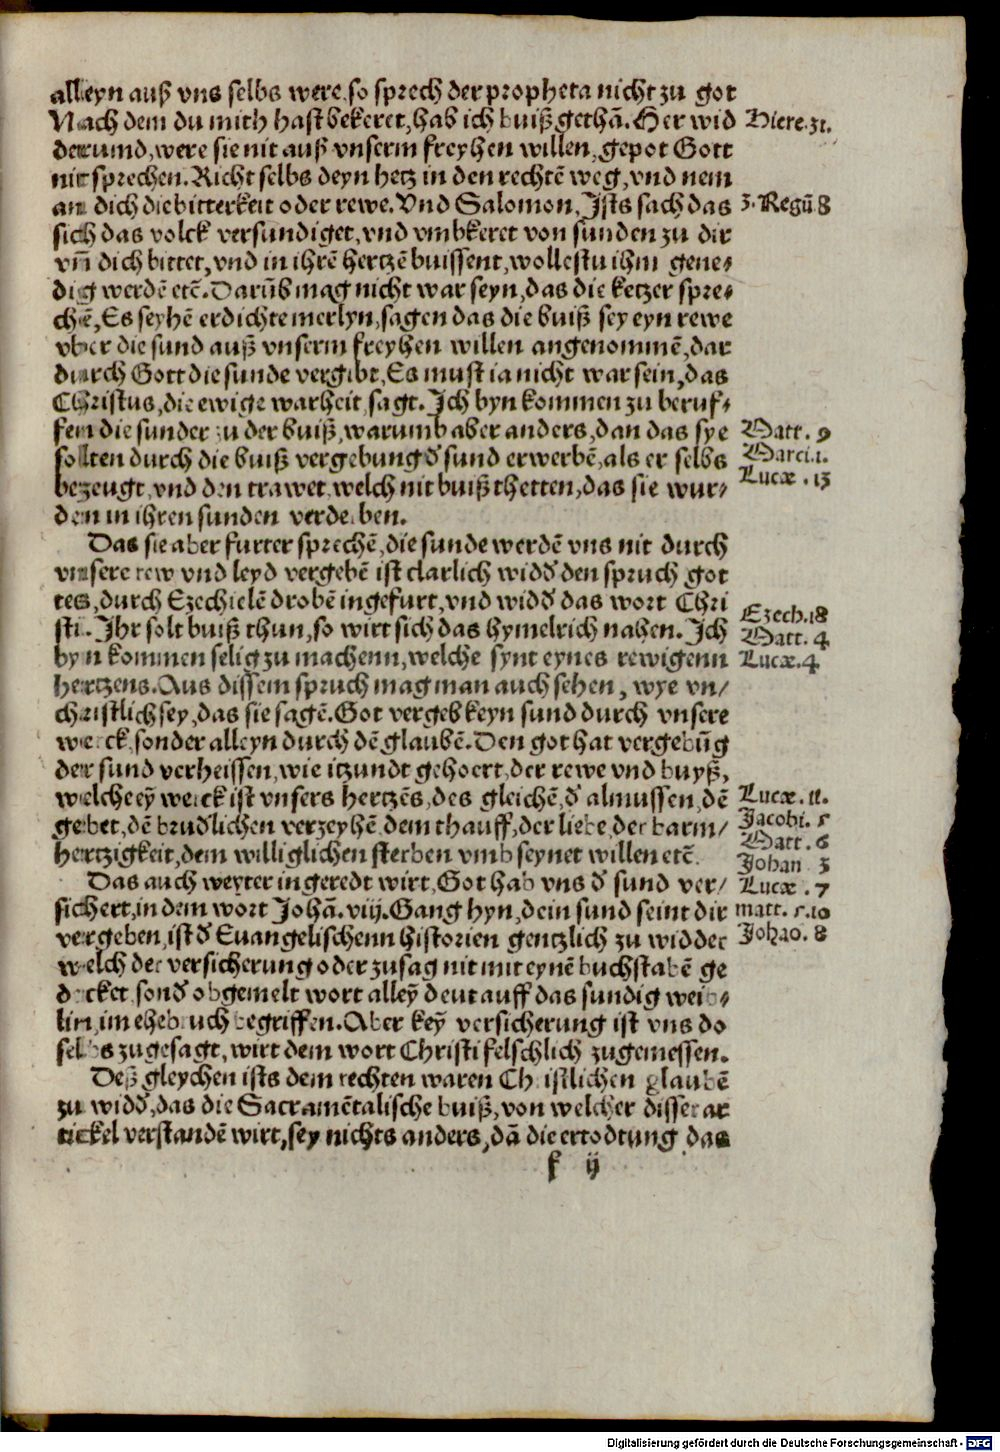 alleyn auß vns selbs were, so sprech der propheta nicht zu got
Nach dem du mich hast bekeret, hab ich buiß gethā. Her wid
Hiere. 31.
derumd, were sie nit auß vnserm freyhen willen, gepot Gott
nit sprechen. Richt selbs deyn hetz in den rechtē weg, vnd nem
an dich die bitterkeit oder rewe. Vnd Salomon, Ists sach das
3. Regū 8
sich das volck versundiget, vnd vmbkeret von sunden zu dir
vn̄ dich bittet, vnd in ihrē hertzē buissent, wollestu ihm gene⸗
dig werdē etē. Darūb mag nicht war seyn, das die ketzer spre⸗
chē, Es seyhē erdichte merlyn, sagen das die buiß sey eyn rewe
vber die sund auß vnserm freyhen willen angenommē, dar
durch Gott die sunde vergibt, Es must ia nicht war sein, das
Christus, die ewige warheit, sagt. Ich byn kommen zu beruf⸗
fen die sunder zu der buiß, warumb aber anders, dan das sye
Matt. 9
sollten durch die buiß vergebung đ sund erwerbē, als er selbs
Marci. 1.
bezeugt, vnd den trawet, welch nit buiß thetten, das sie wur/
Lucæ. 13
den in ihren sunden verderben.
Das sie aber furter sprechē, die sunde werdē vns nit durch
vnsere rew vnd leyd vergebē ist clarlich widđ den spruch got
tes, durch Ezechielē droben ingefurt, vnd widđ das wort Chri
Ezech. 18
sti. Ihr solt buiß thun, so wirt sich das hymelrich nahen. Ich
Matt. 4
byn kommen selig zu machenn, welche synt eynes rewigenn
Lucæ. 4
hertzens. Aus dissem spruch mag man auch sehen, wye vn/
christlich sey, das sie sagē. Got vergeb keyn sund durch vnsere
werck, sonder alleyn durch dē glaubē. Den got hat vergebūg
der sund verheissen, wie itzundt gehoert, der rewe vnd buyß,
welche eȳ werck ist vnsers hertzēs, des gleichē, đ almussen, dē
Lucæ. 11.
gebet, dē brudlichen verzeyhē, dem thauff, der liebe, der barm/
Jacobi. 5
Matt. 6
hertzigkeit, dem williglichen sterben vmb seynet willen etē.
Johan 3
Das auch weyter ingeredt wirt, Got hab vns đ sund ver/
Lucæ. 7
sichert, in dem wort Johā. viij. Gang hyn, dein sund seint dir
matt. 5. 10
vergeben, ist đ Euangelischenn historien gentzlich zu widder
Johan. 8
welch der versicherung oder zusag nit mit eynē buchstabē ge
decket, sonđ obgemelt wort alleȳ deut auff das sundig weib⸗
lin, im ehebruch begriffen. Aber keȳ versicherung ist vns do
selbs zugesagt, wirt dem wort Christi felschlich zugemessen.
Deß gleychen ists dem rechten waren Christlichen glaubē
zu widđ, das die Sacramētalische buiß, von welcher disser ar
tickel verstandē wirt, sey nichts anders, dā die ertodtung das
f ij
Digitalisierung gefördert durch die Deutsche Forschungsgemeinschaft - DFG